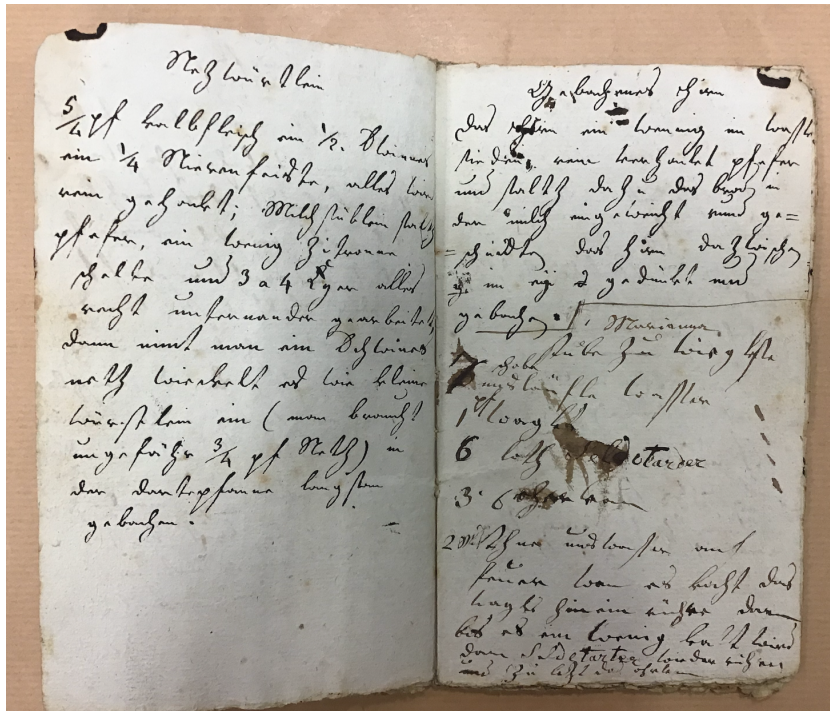 Netzwürstlein
5/4 pf kalbfleisch ein 1/2. Schweines
ein 1/4 Nierenfeiste, alles
rein gehackt; Milchstüblein saltz
pfefer, ein wenig Zitrone
schelte und 3 a 4 Eyer alles
recht unternander gearbeitet
dann nimt man ein Schweines
netz wieckelt es wie kleine
würstlein ein (man braucht
ungefähr 3/4 pf Netz) in
der dartepfanne langsam
gebachen.
Gebachenes Hirn
das Hirn ein wenig im wasser
sieden, rein verhackt pfefer
und saltz dazu das brod in
der milch eingeweicht und ge=
=schnitten das Hirn dazwischen
im eig gedünkt und
gebachen.
Marianna
stube zu
7 wasser
1 pf wags
6 loth Seldetarder
3.
2 und wasser auf
feuer wan es kocht das
wags hinein rühre dan
bis es ein wenig kalt wird
dann Seldetartre wieder rühren
und zu letzt das